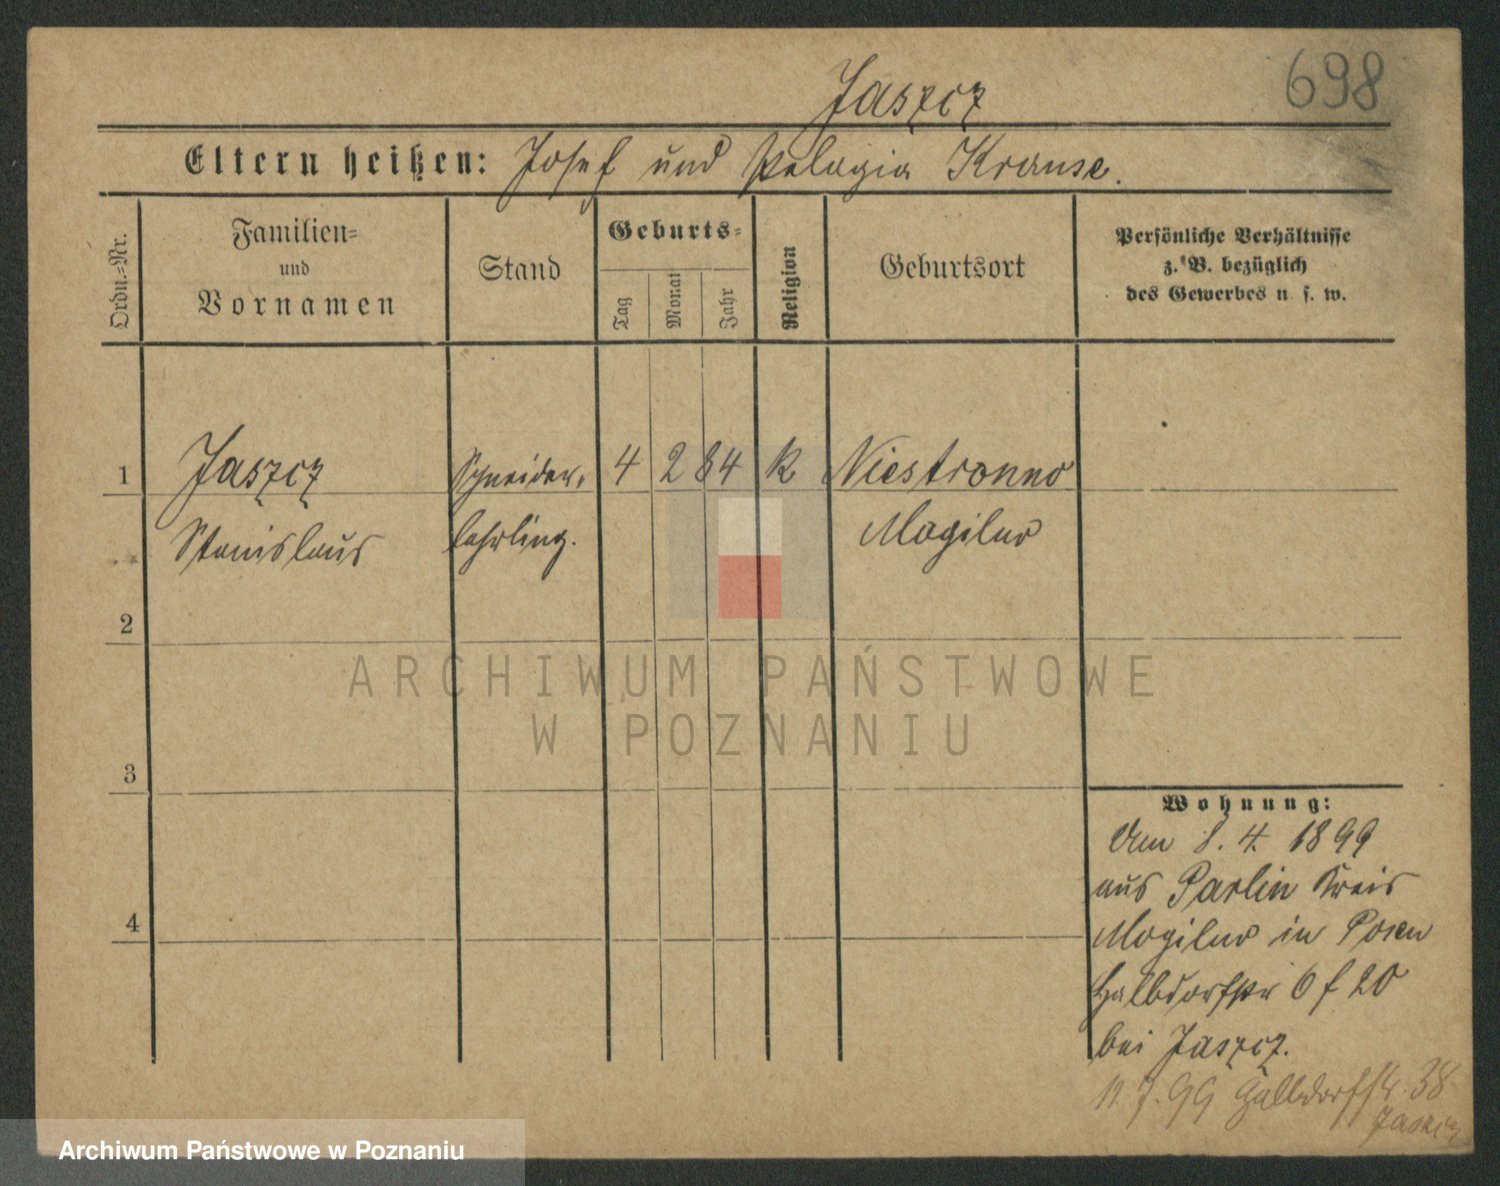 698
Jaszcz
Eltern heißen: Josef und Pelagia Krause.
Ordn.=Nr.
Familien=
und
Vornamen
Stand
Geburts=
Tag
Monat
Jahr
Religion
Geburtsort
Persönliche Verhältnisse
z. B. bezüglich
des Gewerbes u. s. w.
1 Jaszcz Schneider= 4 2 84 k Niestronno
Stanislaus lehrling. Mogilno
2
ARCHIWUM PAŃSTWOWE
W POZNANIU
3
Wohnung:
Am 8. 4. 1899
aus Parlin Kreis
4
Mogilno in Posen
Halbdorfstr 6 f 20
bei Jaszcz.
11. 7. 99 Halbdorfstr. 38
Jaszcz
Archiwum Państwowe w Poznaniu